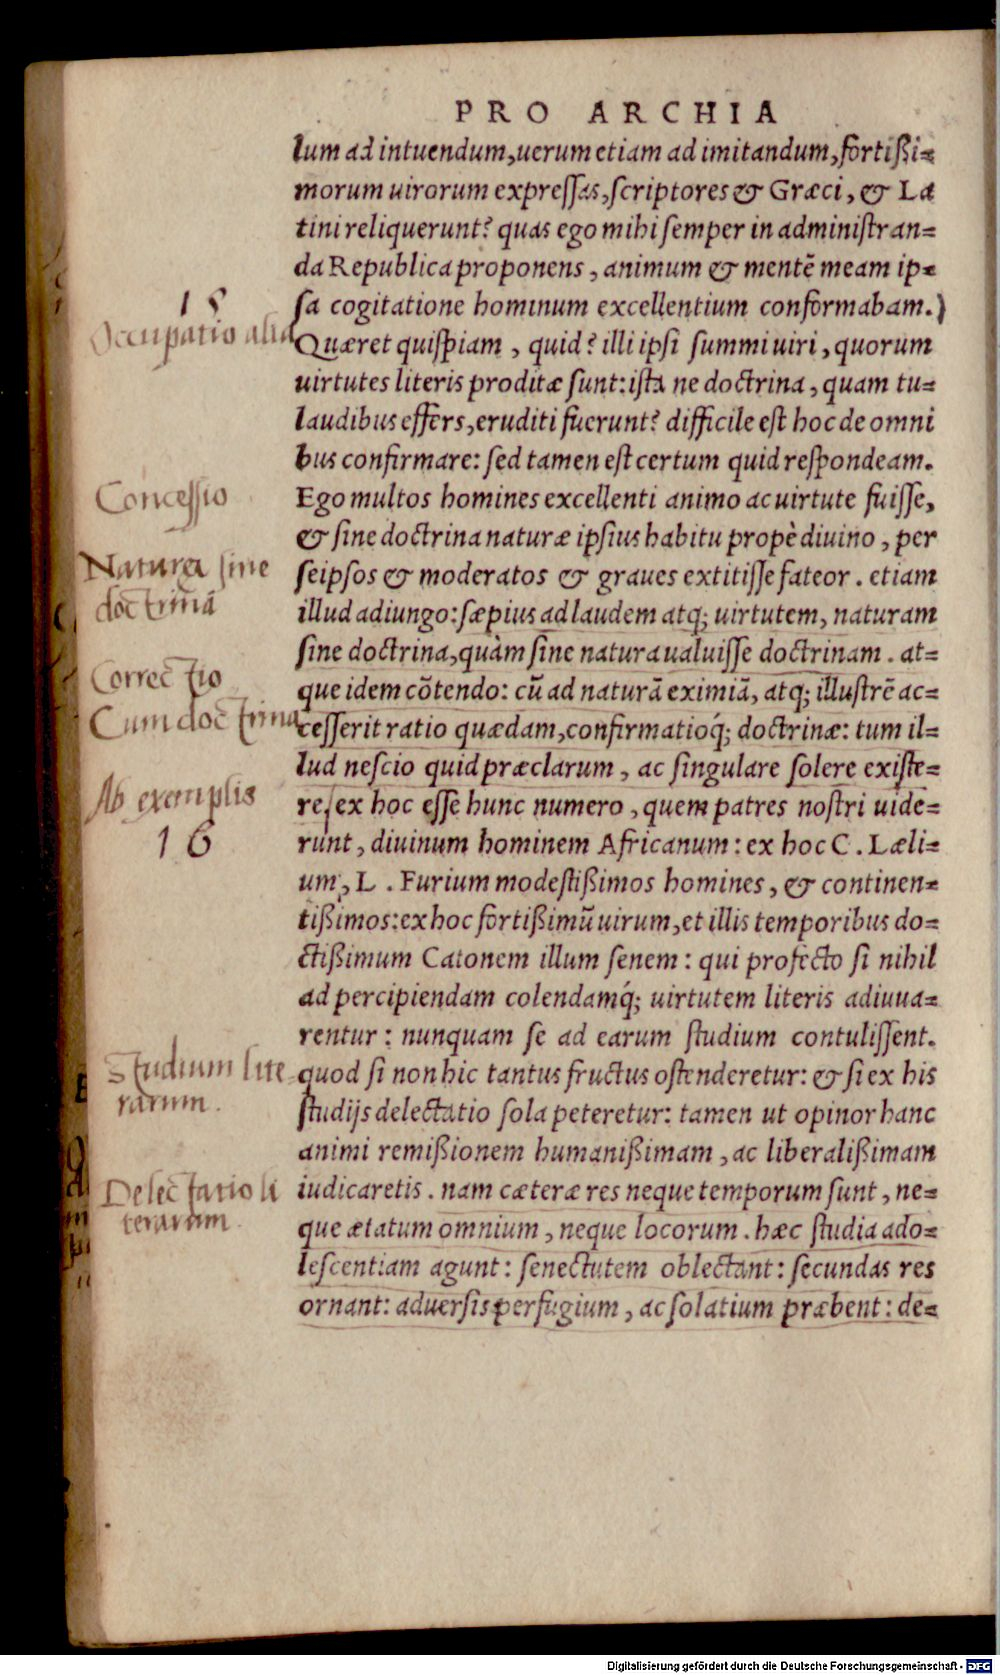 PRO ARCHIA
lum ad intuendum, uerum etiam ad imitandum, fortißi=
morum uirorum expressas, scriptores & Græci, & La
tini reliquerunt? quas ego mihi semper in administran=
da Republica proponens, animum & mentẽ meam ip=
sa cogitatione hominum excellentium conformabam.)
15
Occupatio alia
Quæret quispiam, quid? illi ipsi summi uiri, quorum
uirtutes literis proditæ sunt: ista ne doctrina, quam tu=
laudibus effers, eruditi fuerunt? difficile est hoc de omni
bus confirmare: sed tamen est certum quid respondeam.
Concessio
Ego multos homines excellenti animo ac uirtute fuisse,
& sine doctrina naturæ ipsius habitu propè diuino, per
Natura sine
doctrinā
seipsos & moderatos & graues extitisse fateor. etiam
illud adiungo: sæpius ad laudem atq; uirtutem, naturam
sine doctrina, quàm sine natura ualuisse doctrinam. at=
Correctio
Cum doctrina
que idem cõtendo: cũ ad naturã eximiã, atq; illustrẽ ac=
cesserit ratio quædam, confirmatioq́; doctrinæ: tum il=
lud nescio quid præclarum, ac singulare solere existe=
Ab exemplis
16
re. ex hoc esse hunc numero, quem patres nostri uide=
runt, diuinum hominem Africanum: ex hoc C. Læli=
um, L. Furium modestißimos homines, & continen=
tißimos: ex hoc fortißimũ uirum, et illis temporibus do=
ctißimum Catonem illum senem: qui profecto si nihil
ad percipiendam colendamq́; uirtutem literis adiuua=
rentur: nunquam se ad earum studium contulissent.
Studium lite=
rarum.
quod si non hic tantus fructus ostenderetur: & si ex his
studijs delectatio sola peteretur: tamen ut opinor hanc
animi remißionem humanißimam, ac liberalißimam
Delectatio li
terarum.
iudicaretis. nam cæteræ res neque temporum sunt, ne=
que ætatum omnium, neque locorum. hæc studia ado=
lescentiam agunt: senectutem oblectant: secundas res
ornant: aduersis perfugium, ac solatium præbent: de=
Digitalisierung gefördert durch die Deutsche Forschungsgemeinschaft - DFG